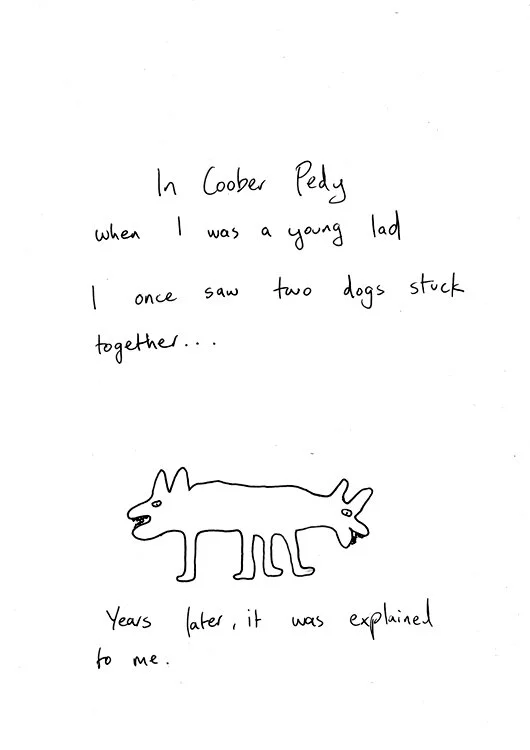 In Coober Pedy
when I was a young lad
I once saw two dogs stuck
together...
Years later, it was explained
to me.